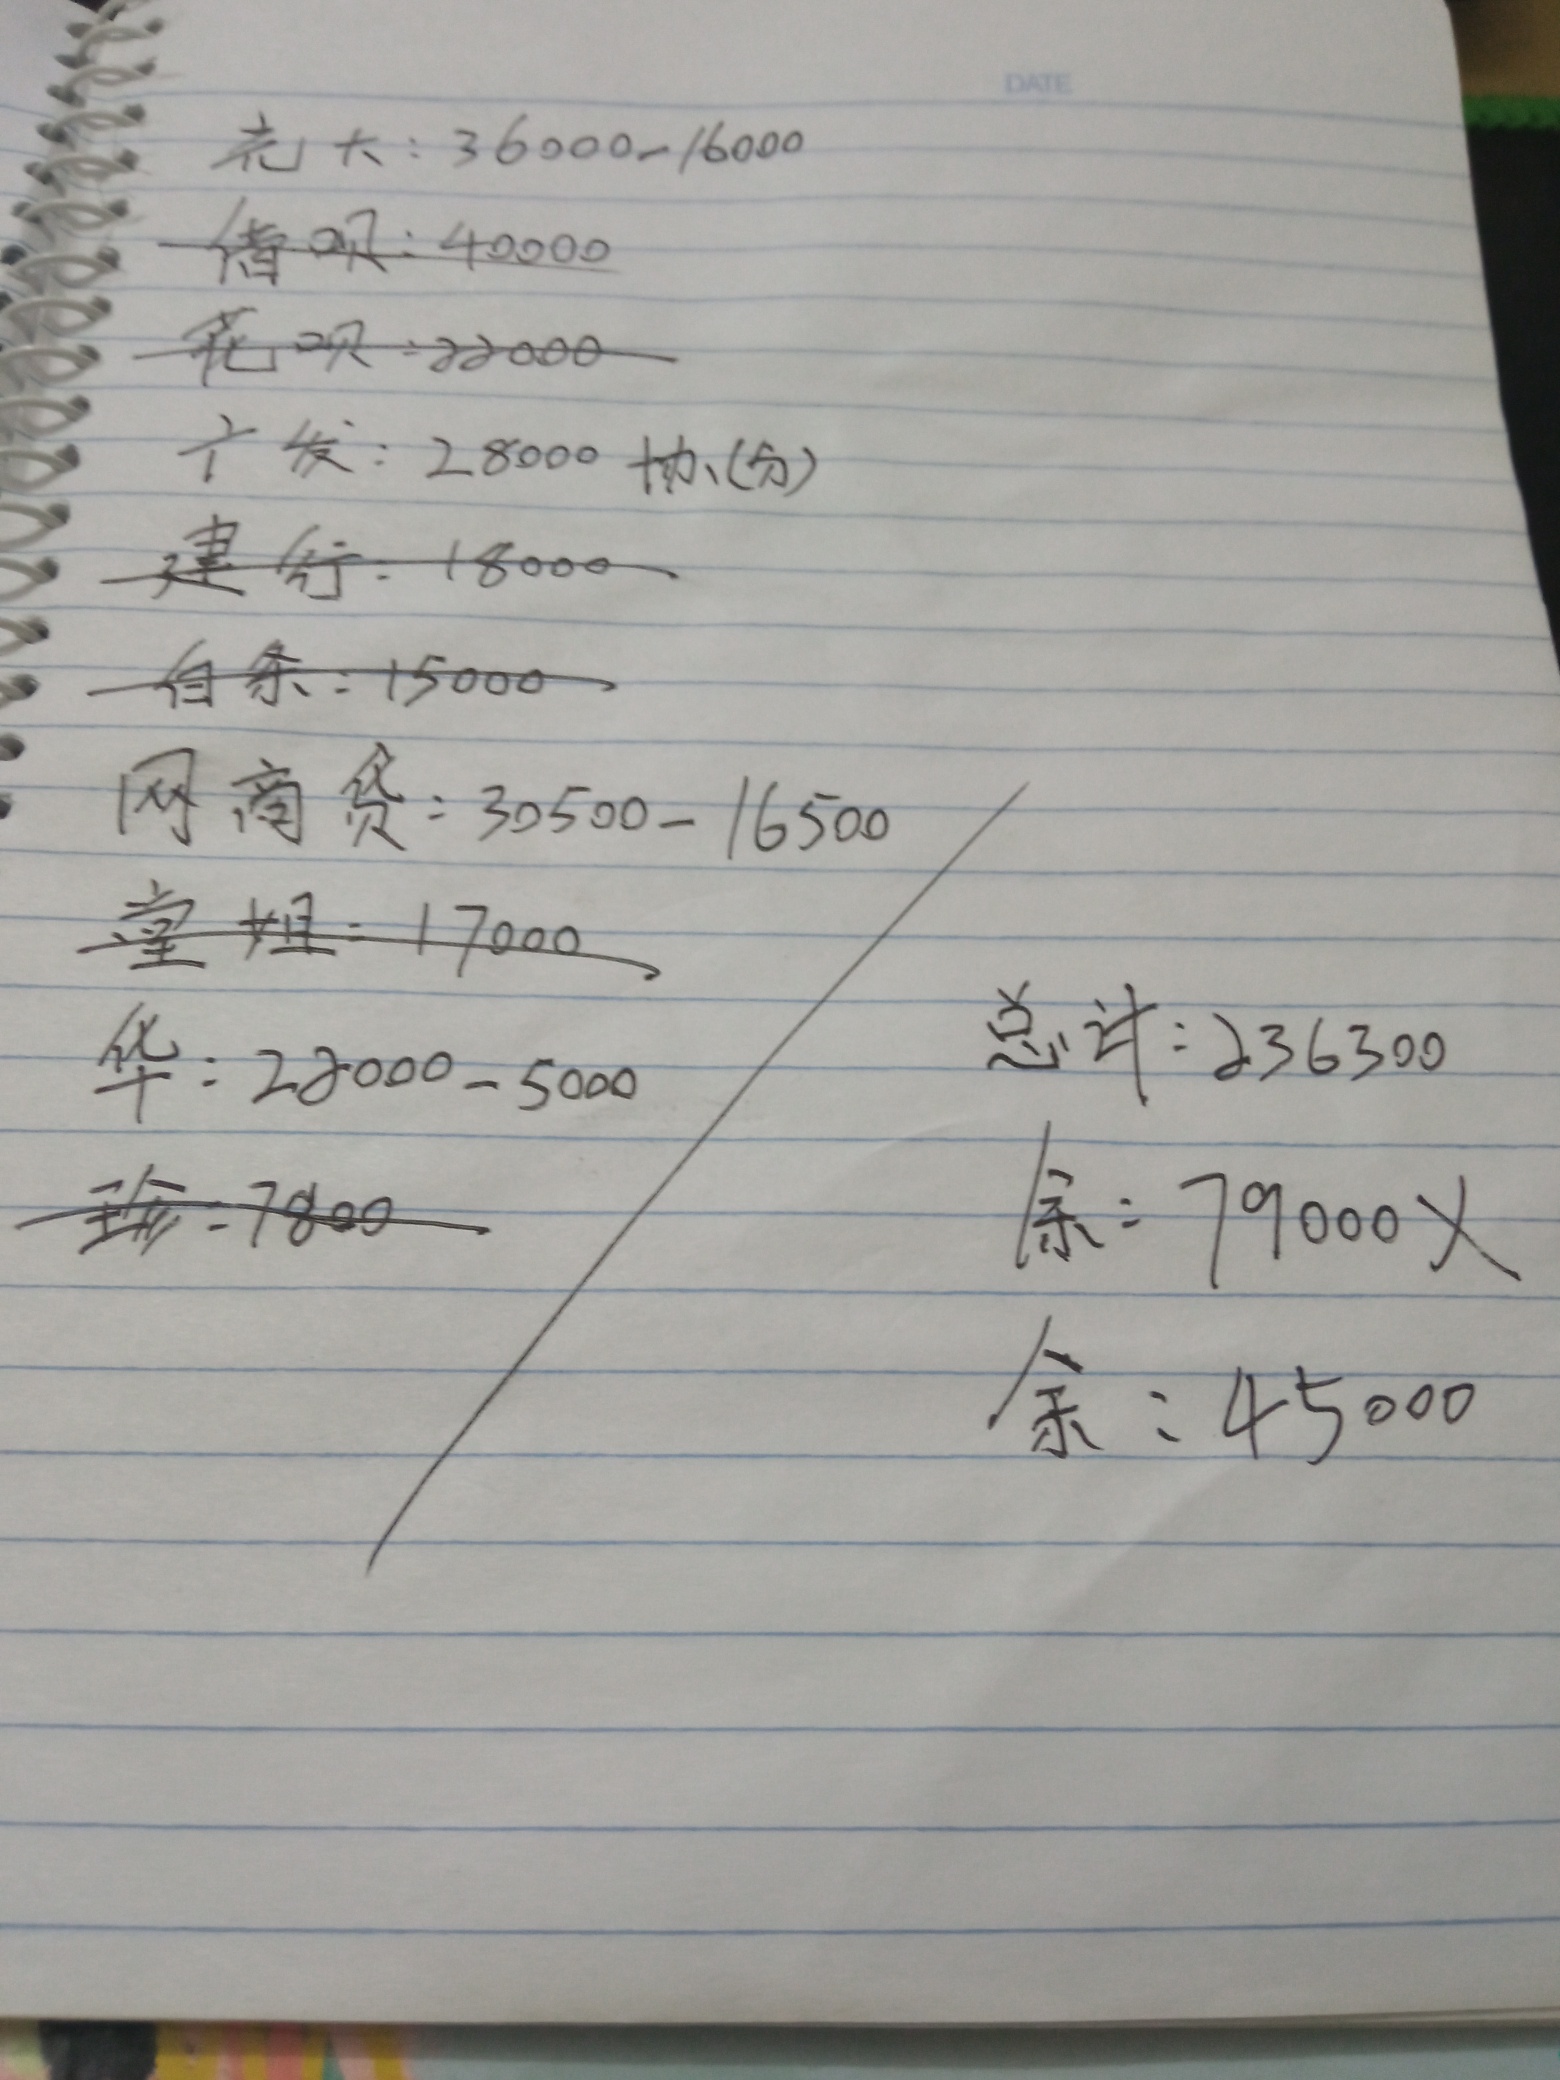 DATE
光大：36000-16000
借呗：40000
花呗：22000
广发：28000 协(分)
建行：18000
白条：15000
网商贷：30500-16500
堂姐：17000
华：22000-5000
珍：7800
总计：236300
余：79000X
余：45000